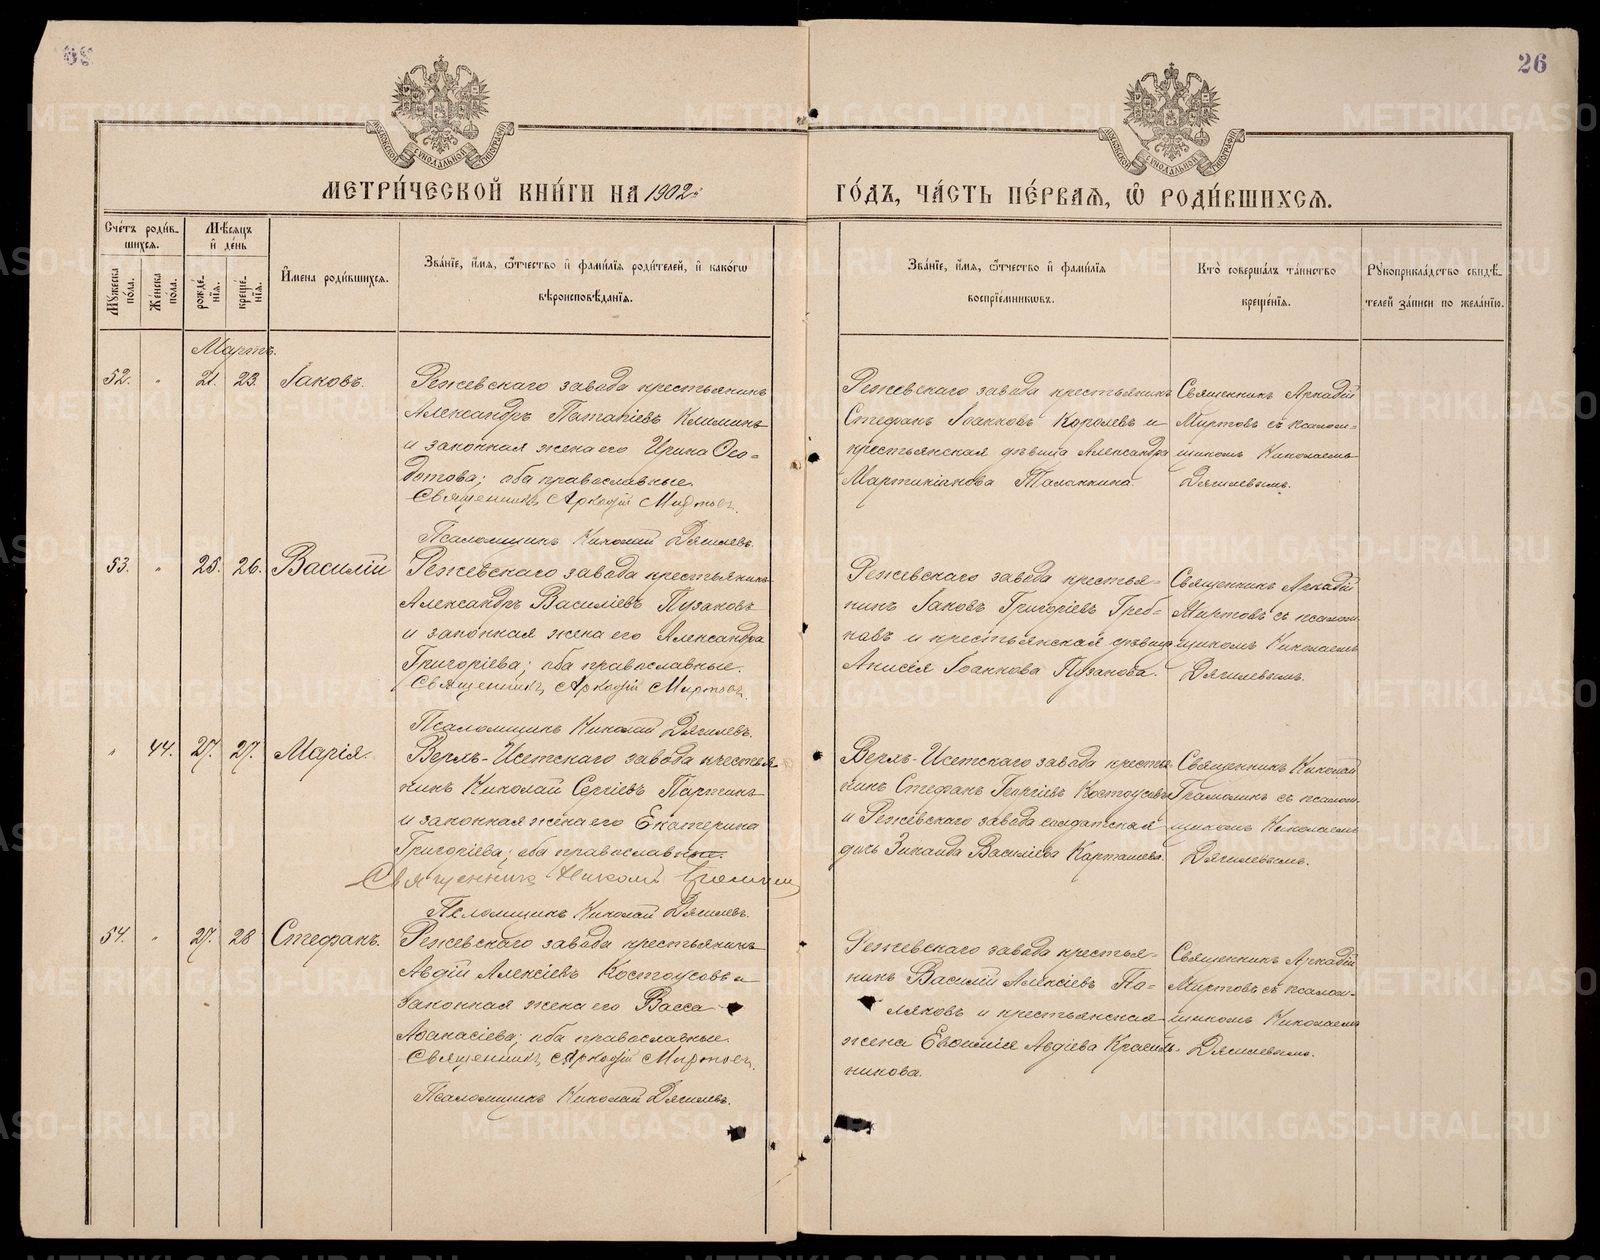 26
МЕТРИ́ЧЕСКОЙ КНИ́ГИ НА 1902й
ГО́ДЪ, ЧА́СТЬ ПЕ́РВАѦ, Ѡ҆ РОДИ́ВШИХСѦ.
Сче́тъ роди́в-
шихсѧ.
Мꙋжеска по́ла.
Же́нска по́ла.
Мѣ́сѧцъ
и҆ де́нь
рожде́-
нїѧ.
креще́-
нїѧ.
И҆мена роди́вшихсѧ.
Зва́нїе, и҆́мѧ, ѻ҆́тчество и҆ фами́лїѧ роди́телей, и҆ како́гѡ
вѣроисповѣ́данїѧ.
Зва́нїе, и҆́мѧ, ѻ҆́тчество и҆ фами́лїѧ
воспрїе́мникѡвъ.
Кто̀ соверша́лъ та́инство
креще́нїѧ.
Рꙋкоприкла́дство свидѣ́-
телей за́писи по жела́нїю.
Мартъ.
52. " 21. 23. Іаковъ.
Режевскаго завода крестьянинъ
Александръ Патапіевъ Климинъ
и законная жена его Ирина Ѳео-
дотова; оба православные.
Священникъ Аркадій Миртовъ.
Псаломщикъ Николай Дягилевъ.
Режевскаго завода крестьянинъ
Стефанъ Іоанновъ Королевъ и
крестьянская дѣвица Александра
Мартиніанова Таланкина
Священникъ Аркадій
Миртовъ съ псалом-
щикомъ Николаемъ
Дягилевымъ.
53. " 25. 26. Василій
Режевскаго завода крестьянинъ
Александръ Василіевъ Пузановъ
и законная жена его Александра
Григоріева; оба православные.
Священникъ Аркадій Миртовъ.
Псаломщикъ Николай Дягилевъ.
Режевскаго завода крестья-
нинъ Іаковъ Григоріевъ Греб-
невъ и крестьянская дѣвица
Анисія Іоаннова Пузанова.
Священникъ Аркадій
Миртовъ съ псалом-
щикомъ Николаемъ
Дягилевымъ.
" 44. 27. 27. Марія.
Верхъ-Исетскаго завода крестья-
нинъ Николай Сергіевъ Партинъ
и законная жена его Екатерина
Григоріева; оба православные.
Священникъ Николай Грамолин
Псаломщикъ Николай Дягилевъ.
Верхъ-Исетскаго завода крестья-
нинъ Стефанъ Георгіевъ Костоусовъ
и Режевскаго завода солдатская
дочь Зинаида Василіева Карташева.
Священникъ Николай
Грамолинъ съ псалом-
щикомъ Николаемъ
Дягилевымъ.
54. " 27. 28 Стефанъ.
Режевскаго завода крестьянинъ
Авдій Алексіевъ Костоусовъ и
законная жена его Васса
Аѳанасіева; оба православные.
Священникъ Аркадій Миртовъ.
Псаломщикъ Николай Дягилевъ.
Режевскаго завода крестья-
нинъ Василій Алексіевъ По-
ляковъ и крестьянская
жена Евѳимія Авдіева Красиль-
никова.
Священникъ Аркадій
Миртовъ съ псалом-
щикомъ Николаемъ
Дягилевымъ.
METRIKI.GASO-URAL.RU